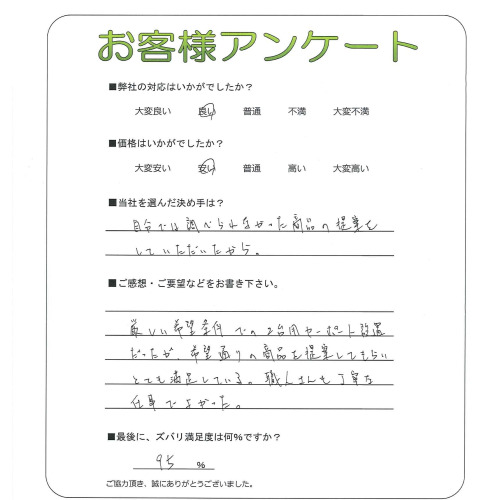 お客様アンケート
■弊社の対応はいかがでしたか？
大変良い 良い 普通 不満 大変不満
■価格はいかがでしたか？
大変安い 安い 普通 高い 大変高い
■当社を選んだ決め手は？
自分では調べられなかった商品の提案を
していただいたから。
■ご感想・ご要望などをお書き下さい。
厳しい希望条件での2台用カーポート設置
だったが、希望通りの商品を提案してもらい
とても満足している。職人さんも丁寧な
仕事でよかった。
■最後に、ズバリ満足度は何%ですか？
95 %
ご協力頂き、誠にありがとうございました。